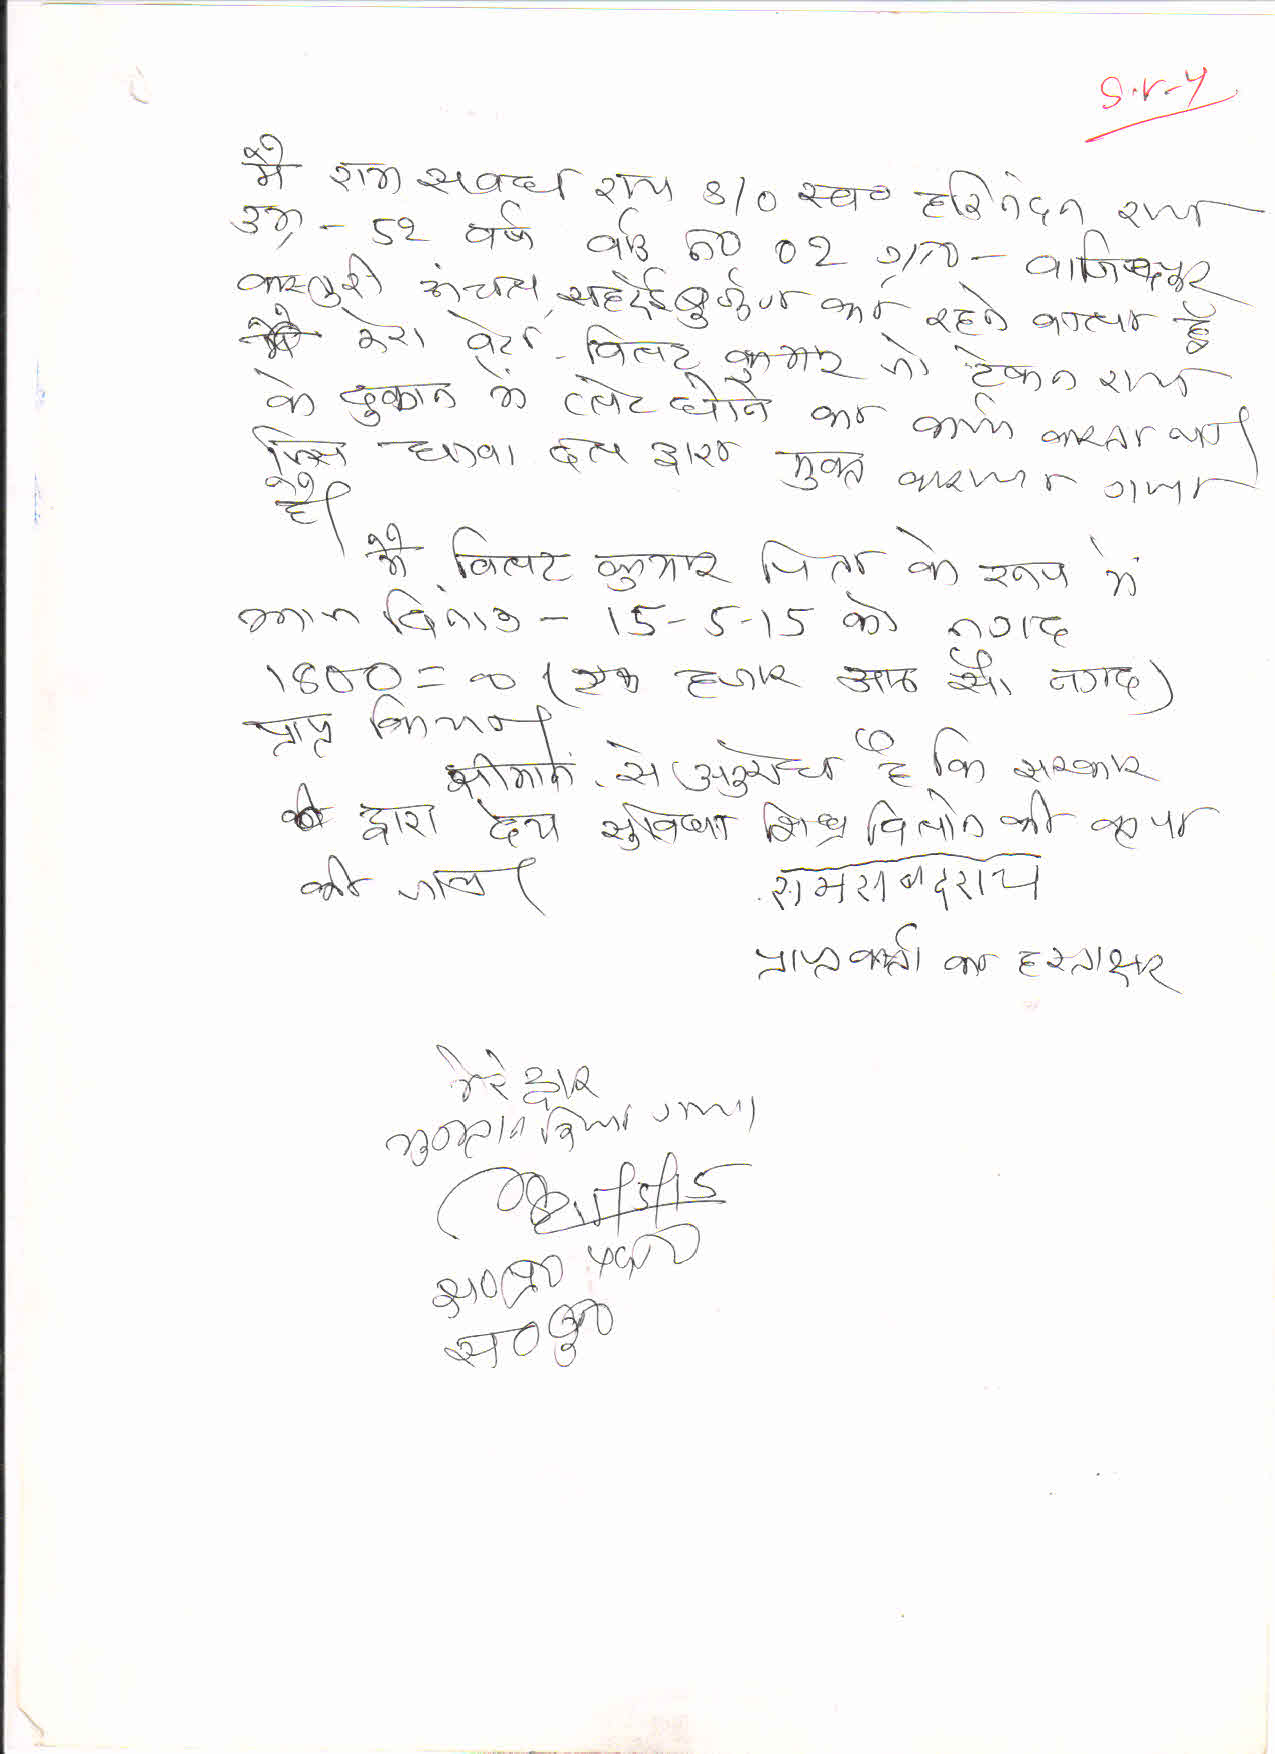 S.V-4
मै राम सवद्य राय S/O स्व० हरिनंदन राय
उम्र - 52 वर्ष वार्ड न० 02 ग्रा० - वाजिदपुर
कस्तुरी पंचायत सहदेई बुजुर्ग का रहने वाला हूँ
मेरा बेटा विलट कुमार जो टेकन राय
के दुकान में प्लेट धोने का कार्य करता था।
जिसे धावा दल द्वारा मुक्त कराया गया
है।
मै विलट कुमार पिता के रूप में
आज दिनांक - 15-5-15 को नगद
1800=00 (एक हजार आठ सौ नगद)
प्राप्त किया।
श्रीमान से अनुरोध है कि सरकार
के द्वारा देय सुविधा शिघ्र दिलाने की कृपा
की जाय।
रामसबदराय
प्राप्तकर्ता का हस्ताक्षर
मेरे द्वारा
भुगतान किया गया।